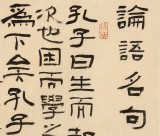 論語名句
孔子曰生而知
次也困而學之
爲下矣孔子